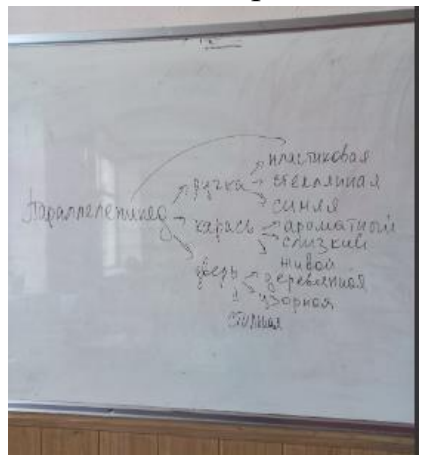 Параллелепипед
ручка
пластиковая
стеклянная
синяя
карась
ароматный
слизкий
живой
дверь
деревянная
узорная
стильная